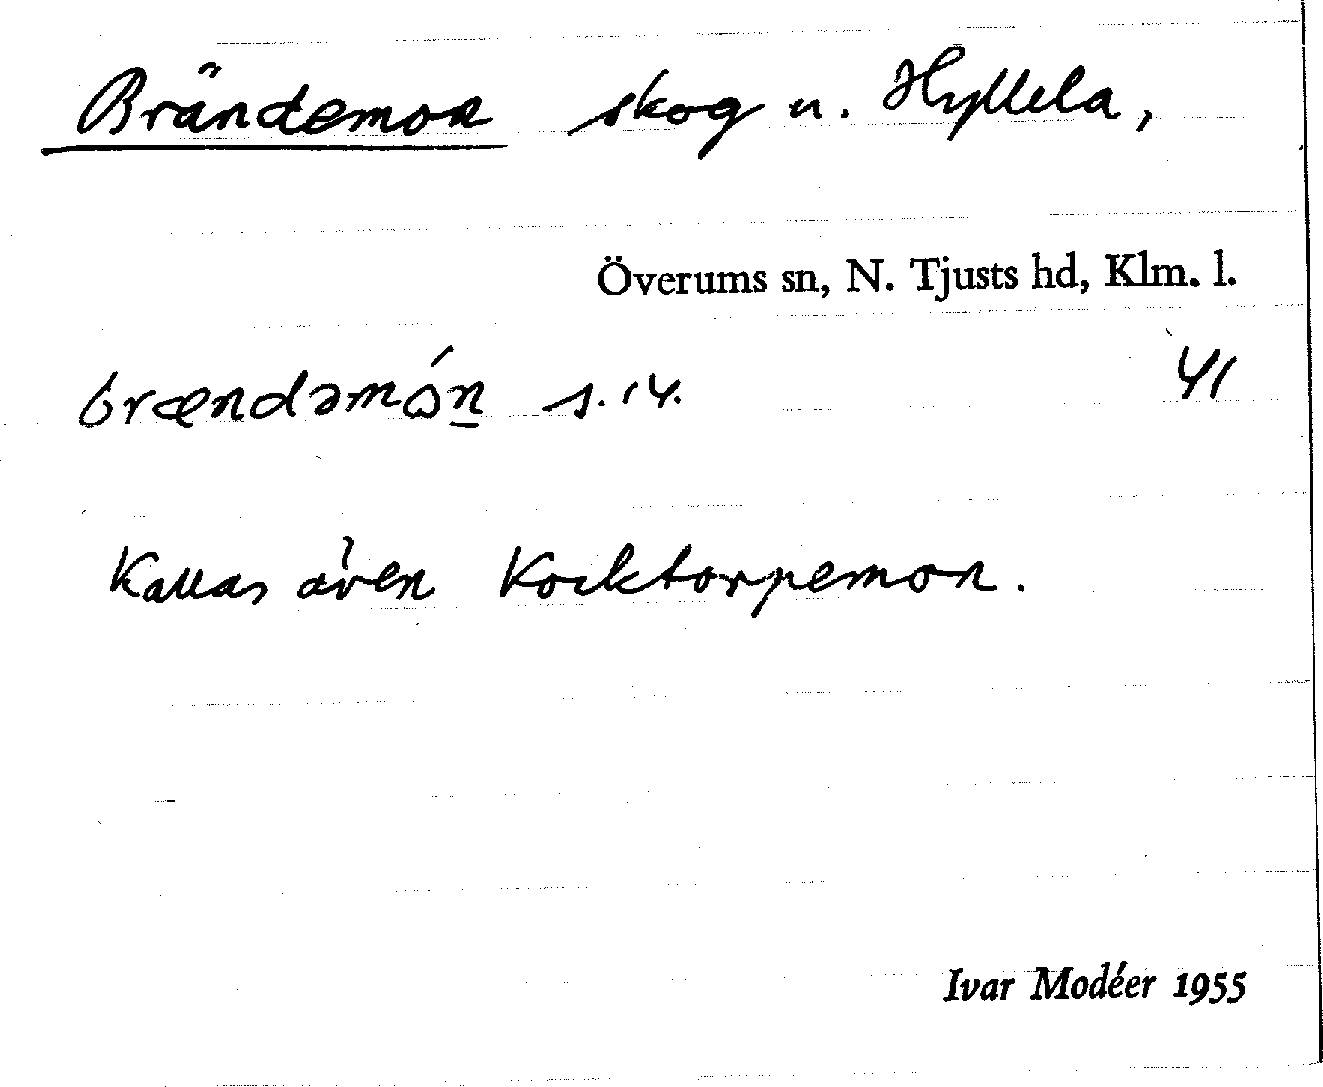 Brändemon skog u. Hyllela,
Överums sn, N. Tjusts hd, Klm. l.
brændəmón s. 14. 41
Kallas även Kocktorpemon.
Ivar Modéer 1955